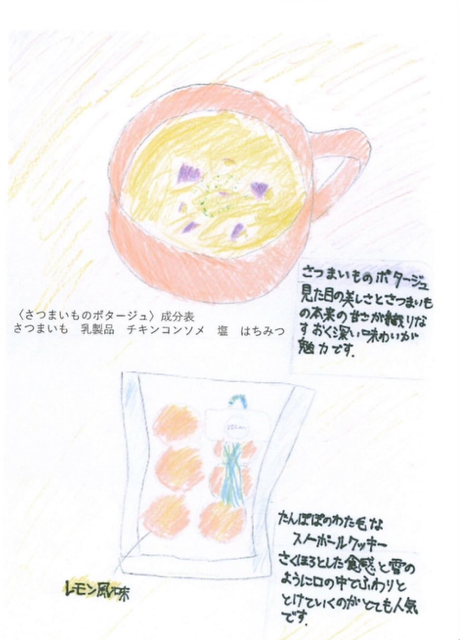 さつまいものポタージュ
見た目の美しさとさつまいも
の本来の甘さが織りな
すおく深い味わいが
魅力です.
〈さつまいものポタージュ〉成分表
さつまいも 乳製品 チキンコンソメ 塩 はちみつ
たんぽぽのわた毛な
スノーボールクッキー
さくほろとした食感と雪の
ように口の中でふわりと
とけていくのがとても人気
です.
レモン風味